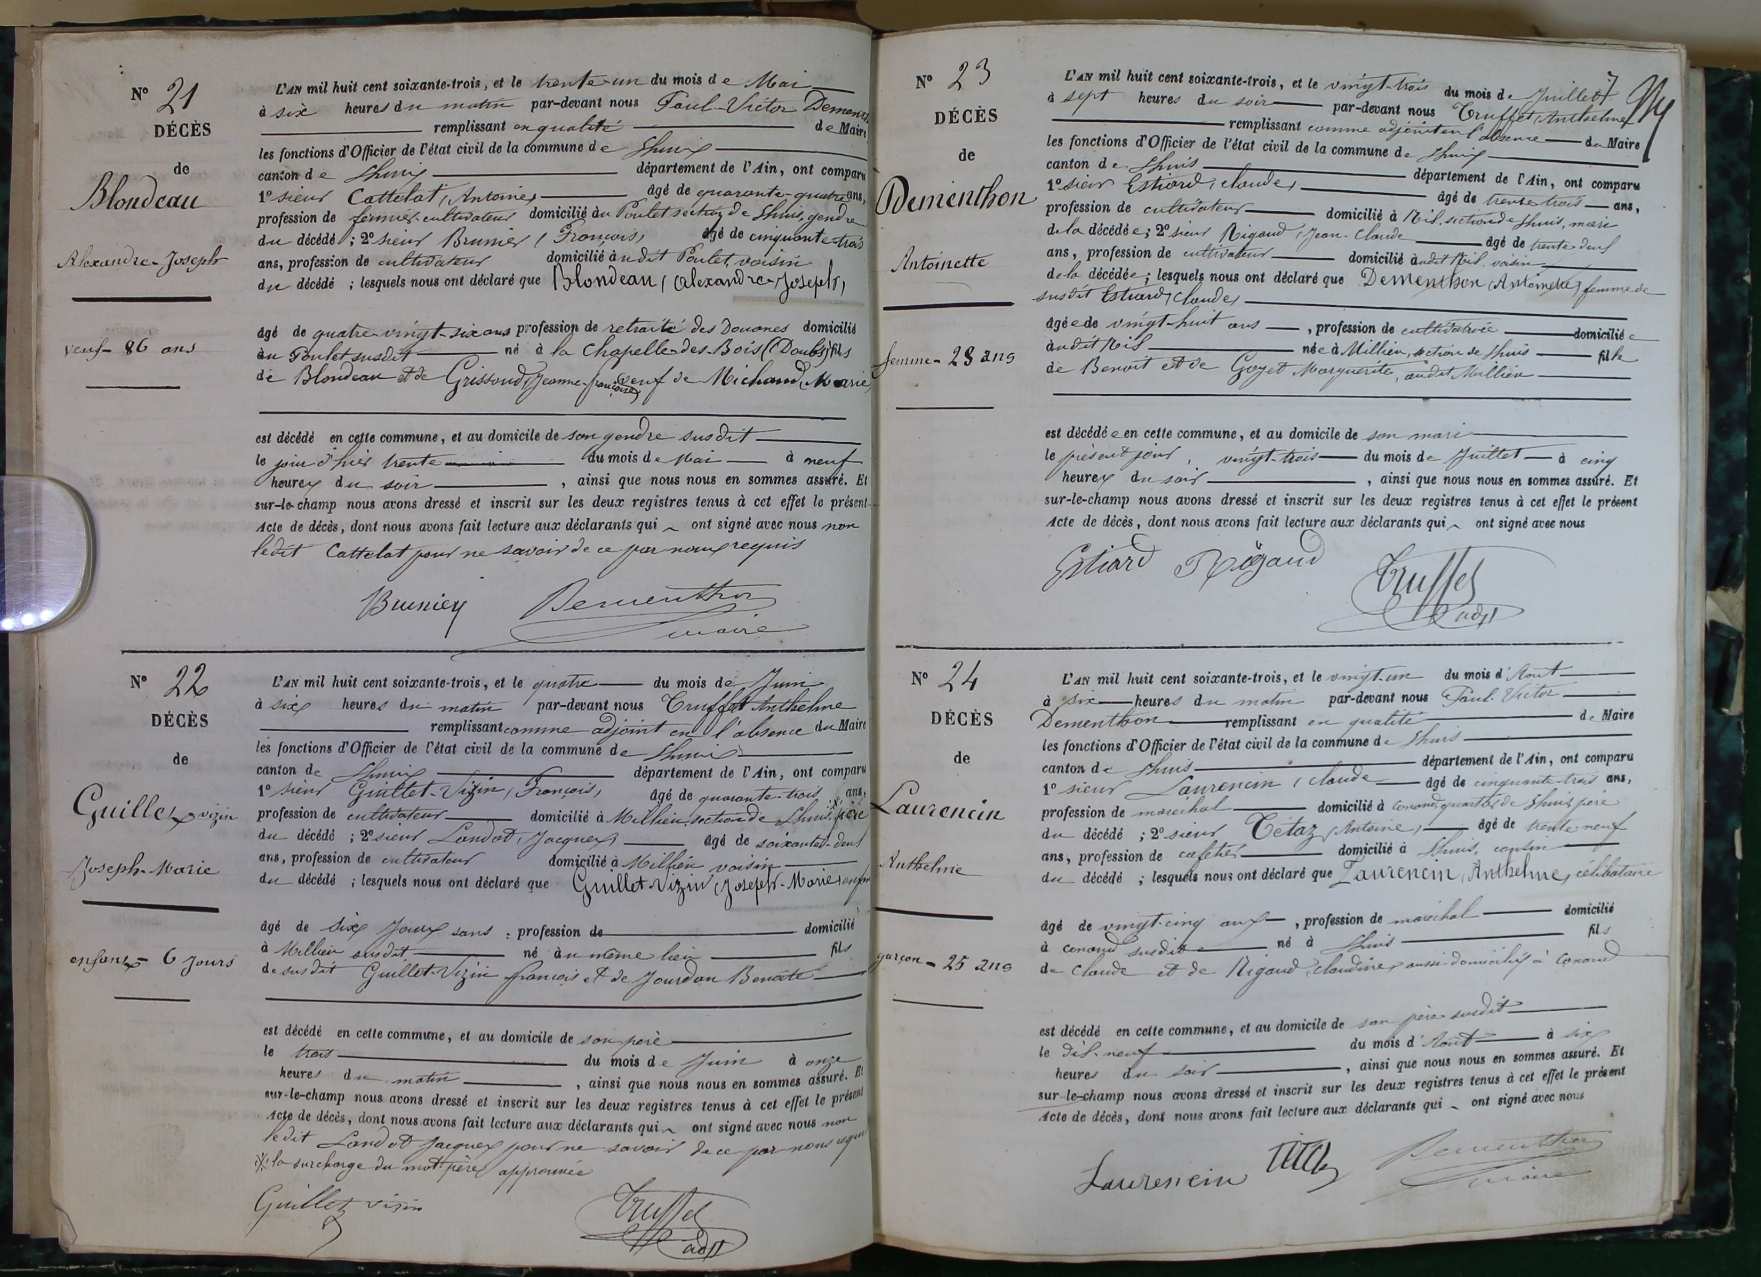 N° 21
DÉCÈS
de
Blondeau
Alexandre-Joseph
veuf - 86 ans
L'AN mil huit cent soixante-trois, et le trente-un du mois de Mai
à six heures du matin par-devant nous Paul-Victor
remplissant en qualité de Maire
les fonctions d'Officier de l'état civil de la commune de Lhuis
canton de Lhuis département de l'Ain, ont comparu
1° sieur Cattelat, Antoine, âgé de quarante-quatre ans,
profession de fermier cultivateur domicilié au Poulet section de Lhuis, gendre
du décédé ; 2° sieur Brunier, François, âgé de cinquante-trois
ans, profession de cultivateur domicilié à udit Poulet, voisin
du décédé ; lesquels nous ont déclaré que Blondeau, Alexandre-Joseph,
âgé de quatre-vingt-six ans profession de retraité des Douanes domicilié
au Poulet susdit né à la Chapelle-des-Bois (Doubs) fils
de Blondeau et de Jeanne-françoise, veuf de Michaud, Marie
est décédé en cette commune, et au domicile de son gendre susdit
le jour d'hier trente du mois de Mai à neuf
heures du soir , ainsi que nous nous en sommes assuré. Et
sur-le-champ nous avons dressé et inscrit sur les deux registres tenus à cet effet le présent
Acte de décès, dont nous avons fait lecture aux déclarants qui ont signé avec nous non
ledit Cattelat pour ne savoir de ce par nous requis
Brunier Dementhon
maire
N° 22
DÉCÈS
de
Guillet vizin
Joseph-Marie
enfant - 6 jours
L'AN mil huit cent soixante-trois, et le quatre du mois de Juin
à six heures du matin par-devant nous Truffet Anthelme
remplissant comme adjoint en l'absence du Maire
les fonctions d'Officier de l'état civil de la commune de Lhuis
canton de Lhuis département de l'Ain, ont comparu
1° sieur Guillet-Vizin, François, âgé de quarante-trois ans,
profession de cultivateur domicilié à Millieu, section de Lhuis, père
du décédé ; 2° sieur Landot, Jacques, âgé de soixante-deux
ans, profession de cultivateur domicilié à Millieu voisin
du décédé ; lesquels nous ont déclaré que Guillet-Vizin, Joseph-Marie,
âgé de six jours sans profession de domicilié
à Millieu susdit né au même lieu fils
de susdit Guillet-Vizin françois et de Jourdan Benoite
est décédé en cette commune, et au domicile de son père
le trois du mois de Juin à onze
heures du matin , ainsi que nous nous en sommes assuré. Et
sur-le-champ nous avons dressé et inscrit sur les deux registres tenus à cet effet le présent
Acte de décès, dont nous avons fait lecture aux déclarants qui ont signé avec nous non
ledit Landot Jacques pour ne savoir de ce par nous requis
la surcharge du mot père approuvée
Guillet vizin Truffet
adjt
N° 23
DÉCÈS
de
Dementhon
Antoinette
femme - 28 ans
L'AN mil huit cent soixante-trois, et le vingt-trois du mois de Juillet
à sept heures du soir par-devant nous Truffet, Anthelme
remplissant comme adjoint en l'absence du Maire
les fonctions d'Officier de l'état civil de la commune de Lhuis
canton de Lhuis département de l'Ain, ont comparu
1° sieur Estiard, claude, âgé de trente-trois ans,
profession de cultivateur domicilié à Rix section de Lhuis, mari
de la décédée ; 2° sieur Rigaud, Jean-Claude âgé de trente-deux
ans, profession de cultivateur domicilié à udit Rix voisin
de la décédée ; lesquels nous ont déclaré que Dementhon, Antoinette, femme de
susdit Estiard, claude,
âgée de vingt-huit ans , profession de cultivatrice domiciliée
audit Rix née à Millieu, section de Lhuis fille
de Benoit et de Goyet Marguerite, audit Millieu
est décédée en cette commune, et au domicile de son mari
le présent jour, vingt-trois du mois de Juillet à cinq
heures du soir , ainsi que nous nous en sommes assuré. Et
sur-le-champ nous avons dressé et inscrit sur les deux registres tenus à cet effet le présent
Acte de décès, dont nous avons fait lecture aux déclarants qui ont signé avec nous
Estiard Rigaud Truffet
adjt
N° 24
DÉCÈS
de
Laurencin
Anthelme
garçon - 25 ans
L'AN mil huit cent soixante-trois, et le vingt-un du mois d'Aout
à six heures du matin par-devant nous Paul-Victor
Dementhon remplissant en qualité de Maire
les fonctions d'Officier de l'état civil de la commune de Lhuis
canton de Lhuis département de l'Ain, ont comparu
1° sieur Laurencin, claude âgé de cinquante-trois ans,
profession de maréchal domicilié à conand, quartier de Lhuis père
du décédé ; 2° sieur Tétaz, Antoine, âgé de trente-neuf
ans, profession de cafetier domicilié à Lhuis, canton
du décédé ; lesquels nous ont déclaré que Laurencin, Anthelme, célibataire
âgé de vingt-cinq ans , profession de maréchal domicilié
à conand susdit né à Lhuis fils
de Claude et de Rigaud, claudine, aussi domiciliés à Conand
est décédé en cette commune, et au domicile de son père susdit
le dix-neuf du mois d'Aout à six
heures du soir , ainsi que nous nous en sommes assuré. Et
sur-le-champ nous avons dressé et inscrit sur les deux registres tenus à cet effet le présent
Acte de décès, dont nous avons fait lecture aux déclarants qui ont signé avec nous
Laurencin Dementhon
maire